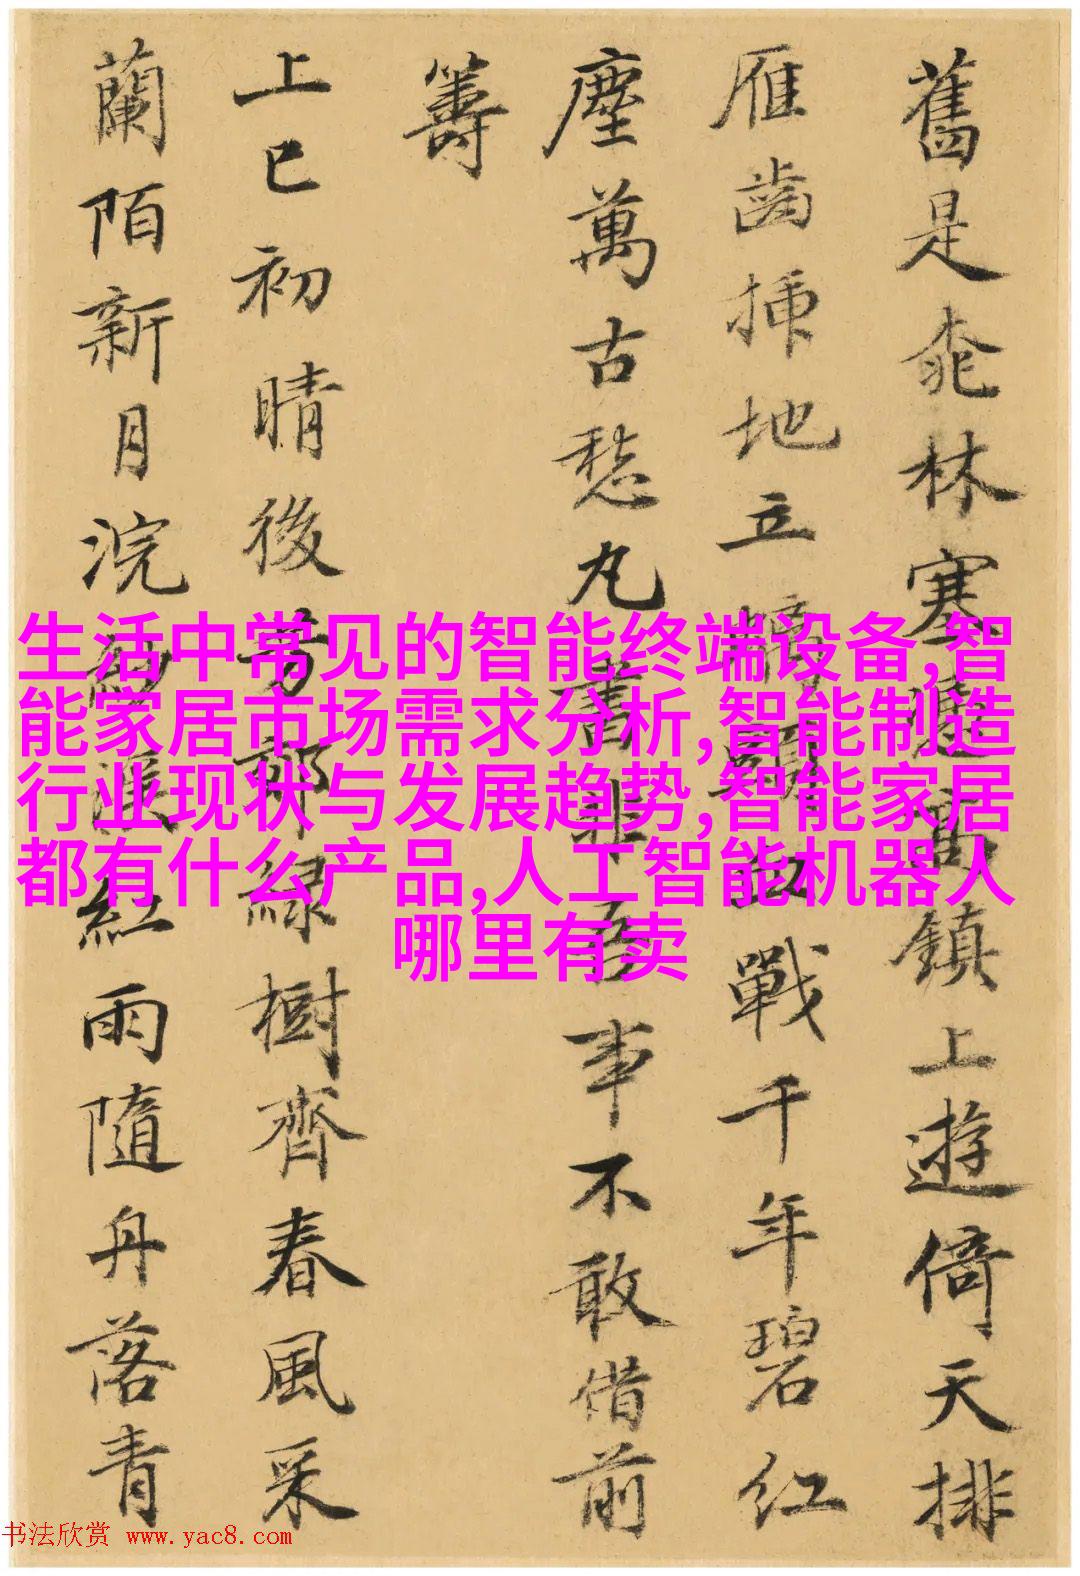 舊是桃林塞邊高鎮上遊倚天排
雁齒挿地立頭血戰千年碧紅
塵萬古愁丸書非吾事不敢借前
籌
上巳初晴後芳郊緑樹齊春風采
蘭陌新月浣紅雨隨舟落青
生活中常见的智能终端设备,智
能家居市场需求分析,智能制造
行业现状与发展趋势,智能家居
都有什么产品,人工智能机器人
哪里有卖
书法欣赏 www.yac8.com